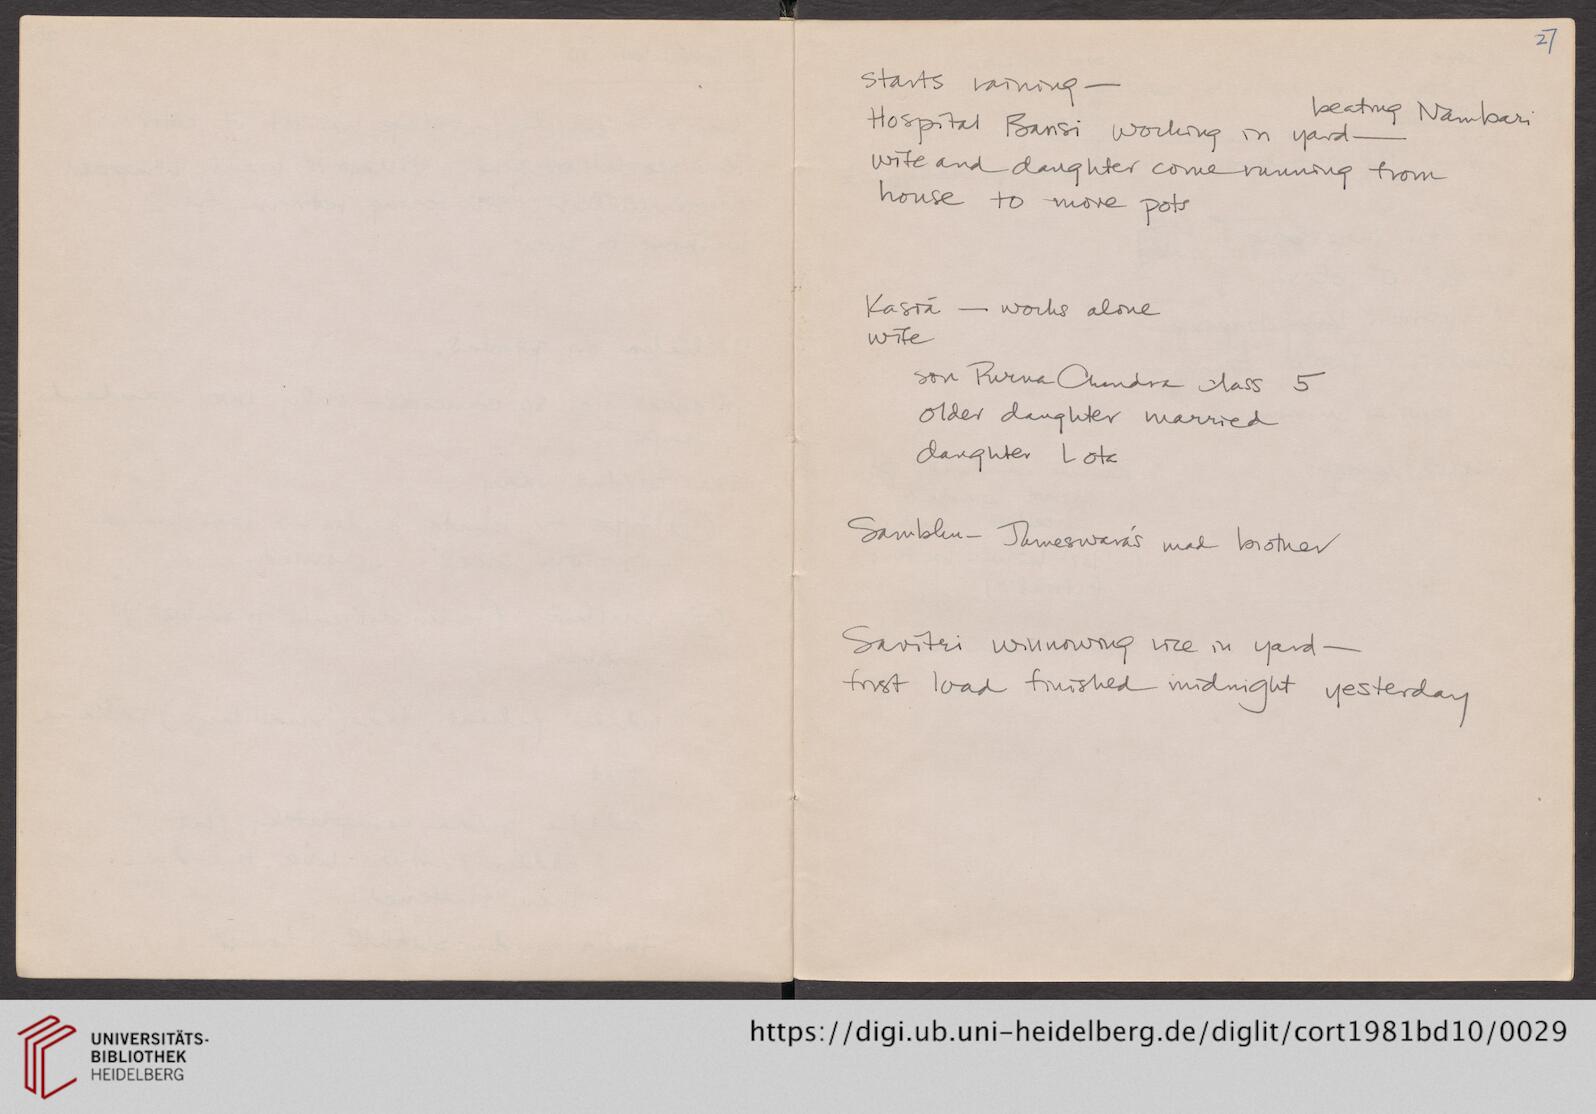 27
starts raining —
beating Nambari
Hospital Bansi working in yard —
wife and daughter come running from
house to move pots
Kasiá — works alone
wife
son Purna Chandra class 5
older daughter married
daughter Lota
Sambhu - Jameswara's mad brother
Savitri winnowing rice in yard —
first load finished midnight yesterday
UNIVERSITÄTS-
BIBLIOTHEK
HEIDELBERG
https://digi.ub.uni-heidelberg.de/diglit/cort1981bd10/0029